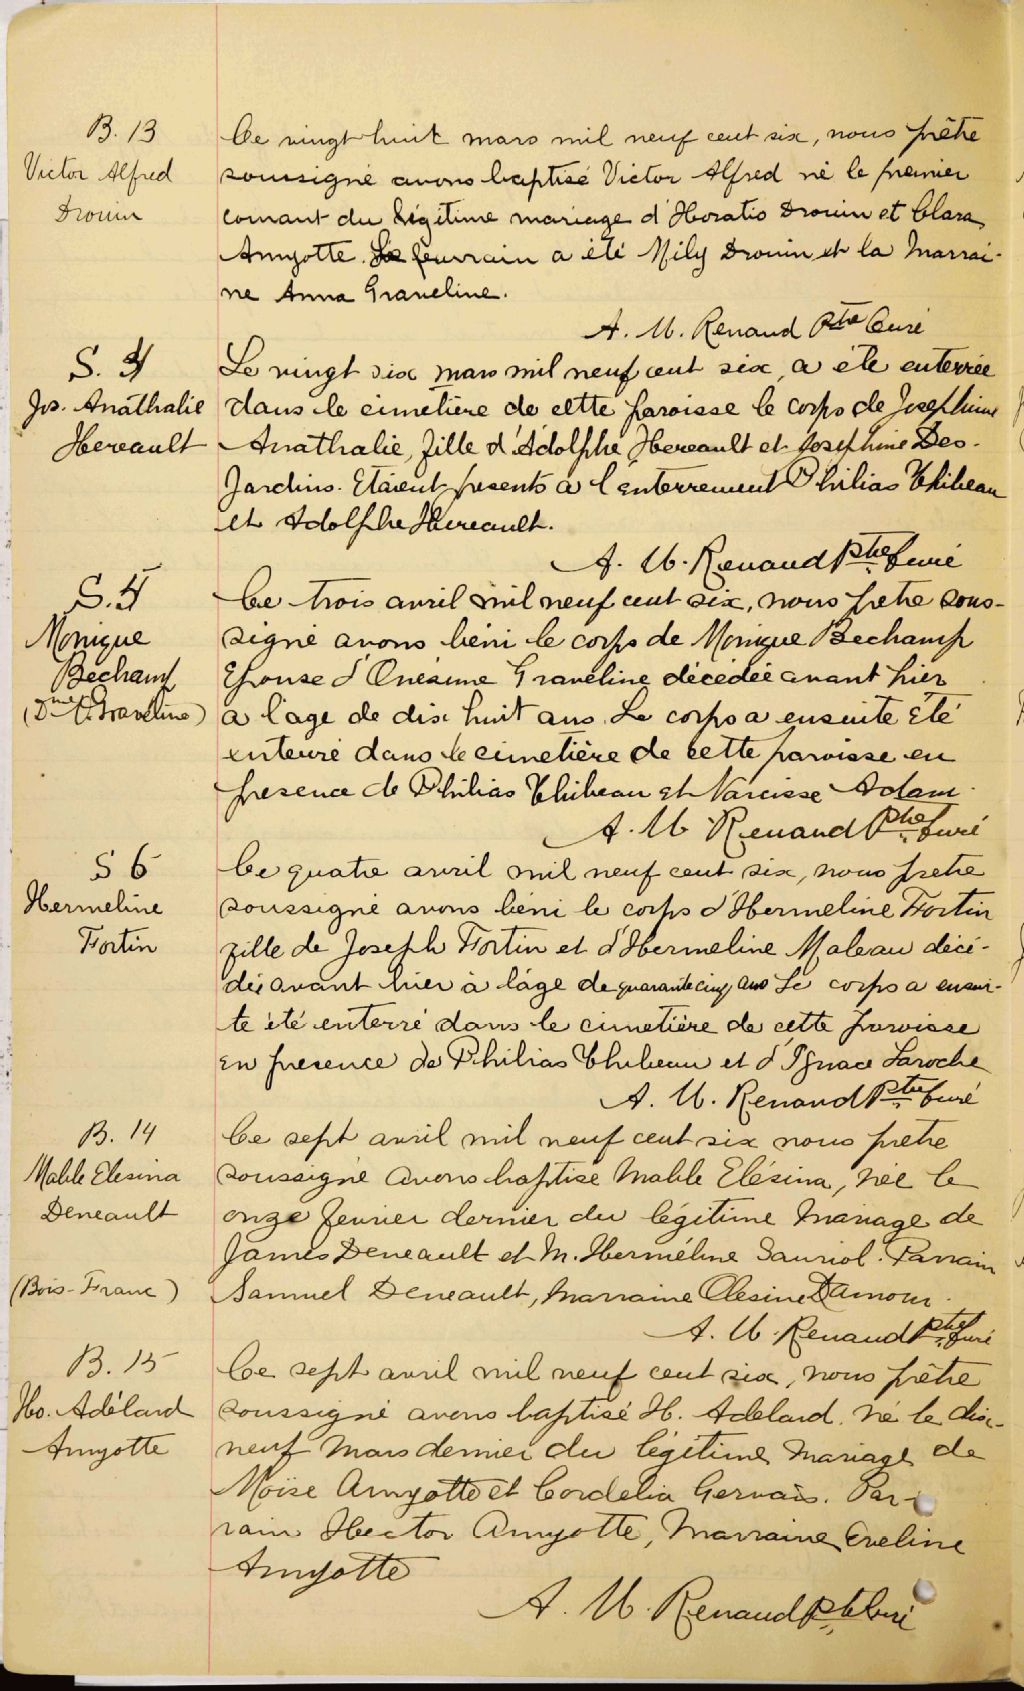 B. 13
Victor Alfred
Drouin
Ce vingt huit mars mil neuf cent six, nous prêtre
soussigné avons baptisé Victor Alfred né le premier
courant du légitime mariage d'Horatio Drouin et Clara
Amyotte. Le parrain a été Mily Drouin et la Marrai-
ne Anna Graveline.
A. U. Renaud Ptre Curé
S. 4
Jos. Anathalie
Hereault
Le vingt six mars mil neuf cent six, a été enterrée
dans le cimetière de cette paroisse le corps de Josephine
Anathalie, fille d'Adolphe Hereault et Josephine Des-
Jardins. Etaient presents à l'enterrement Philias Thibeau
et Adolphe Hereault.
A. U. Renaud Ptre Curé
S. 5
Monique
Bechamp
(Dme O. Graveline)
Ce trois avril mil neuf cent six, nous prêtre sous-
signé avons béni le corps de Monique Bechamp
Epouse d'Onésime Graveline décédée avant hier
a l'age de dix huit ans. Le corps a ensuite été
enterré dans le cimetière de cette paroisse en
presence de Philias Thibeau et Narcisse Adam.
A. U. Renaud Ptre Curé
S 6
Hermeline
Fortin
Ce quatre avril mil neuf cent six, nous prêtre
soussigné avons béni le corps d'Hermeline Fortin
fille de Joseph Fortin et d'Hermeline Maleau décé-
dée avant hier à l'âge de quarante cinq ans Le corps a ensui-
te été enterré dans le cimetière de cette paroisse
en presence de Philias Thibeau et d'Ignace Laroche
A. U. Renaud Ptre Curé
B. 14
Mable Elesina
Deneault
(Bois-Franc)
Ce sept avril mil neuf cent six nous prêtre
soussigné avons baptisé Mable Elésina, née le
onze fevrier dernier du légitime mariage de
James Deneault et M. Herméline Sauriol. Parrain
Samuel Deneault, marraine Olesine Damour.
A. U. Renaud Ptre Curé
B. 15
Ho. Adélard
Amyotte
Ce sept avril mil neuf cent six, nous prêtre
soussigné avons baptisé H. Adelard né le dix-
neuf Mars dernier du légitime mariage de
Moïse Amyotte et Cordelia Gervais. Par-
rain Hector Amyotte, Marraine Eveline
Amyotte
A. U. Renaud Ptre Curé